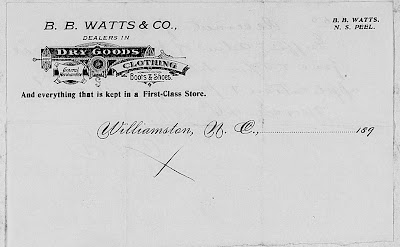 B. B. WATTS & CO.,
DEALERS IN
DRY GOODS
General Merchandise
CLOTHING
BOOTS & SHOES.
And everything that is kept in a First-Class Store.
B. B. WATTS.
N. S. PEEL.
Williamston, N. C., 189